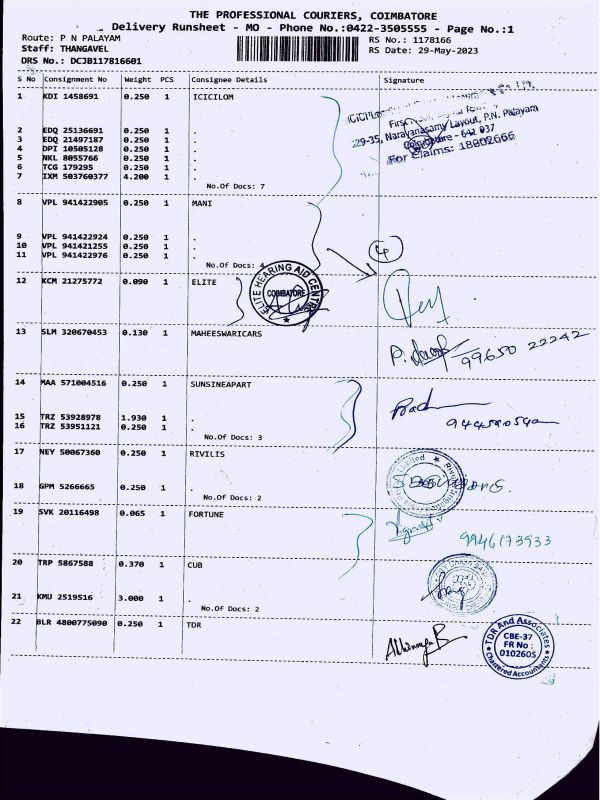 THE PROFESSIONAL COURIERS, COIMBATORE
Delivery Runsheet - MO - Phone No.:0422-3505555 - Page No.:1
Route: P N PALAYAM
RS No.: 1178166
Staff: THANGAVEL
RS Date: 29-May-2023
DRS No.: DCJB117816601
S No Consignment No Weight PCS Consignee Details Signature
1 KDI 1458691 0.250 1 ICICILOM
2 EDQ 25136691 0.250 1 .
3 EDQ 21497187 0.250 1 .
4 DPI 10505128 0.250 1 .
5 NKL 8055766 0.250 1 .
6 TCG 179295 0.250 1 .
7 IXM 503760377 4.200 1 .
No.Of Docs: 7
29-35, Narayanasamy Layout, P.N. Palayam
Coimbatore - 641 037
For Claims: 18002666
8 VPL 941422905 0.250 1 MANI
9 VPL 941422924 0.250 1 .
10 VPL 941421255 0.250 1 .
11 VPL 941422976 0.250 1 .
No.Of Docs: 4
4
12 KCM 21275772 0.090 1 ELITE
ELITE HEARING AID CENTRE
COIMBATORE
13 SLM 320670453 0.130 1 MAHEESWARICARS
99650 22242
14 MAA 571004516 0.250 1 SUNSINEAPART
15 TRZ 53928978 1.930 1 .
16 TRZ 53951121 0.250 1 .
No.Of Docs: 3
17 NEY 50067360 0.250 1 RIVILIS
18 GPM 5266665 0.250 1 .
No.Of Docs: 2
19 SVK 20116498 0.065 1 FORTUNE
9946173933
20 TRP 5867588 0.370 1 CUB
21 KMU 2519516 3.000 1 .
No.Of Docs: 2
22 BLR 4800775090 0.250 1 TDR
TDR And Associates
CBE-37
FR No :
010260S
Chartered Accountants